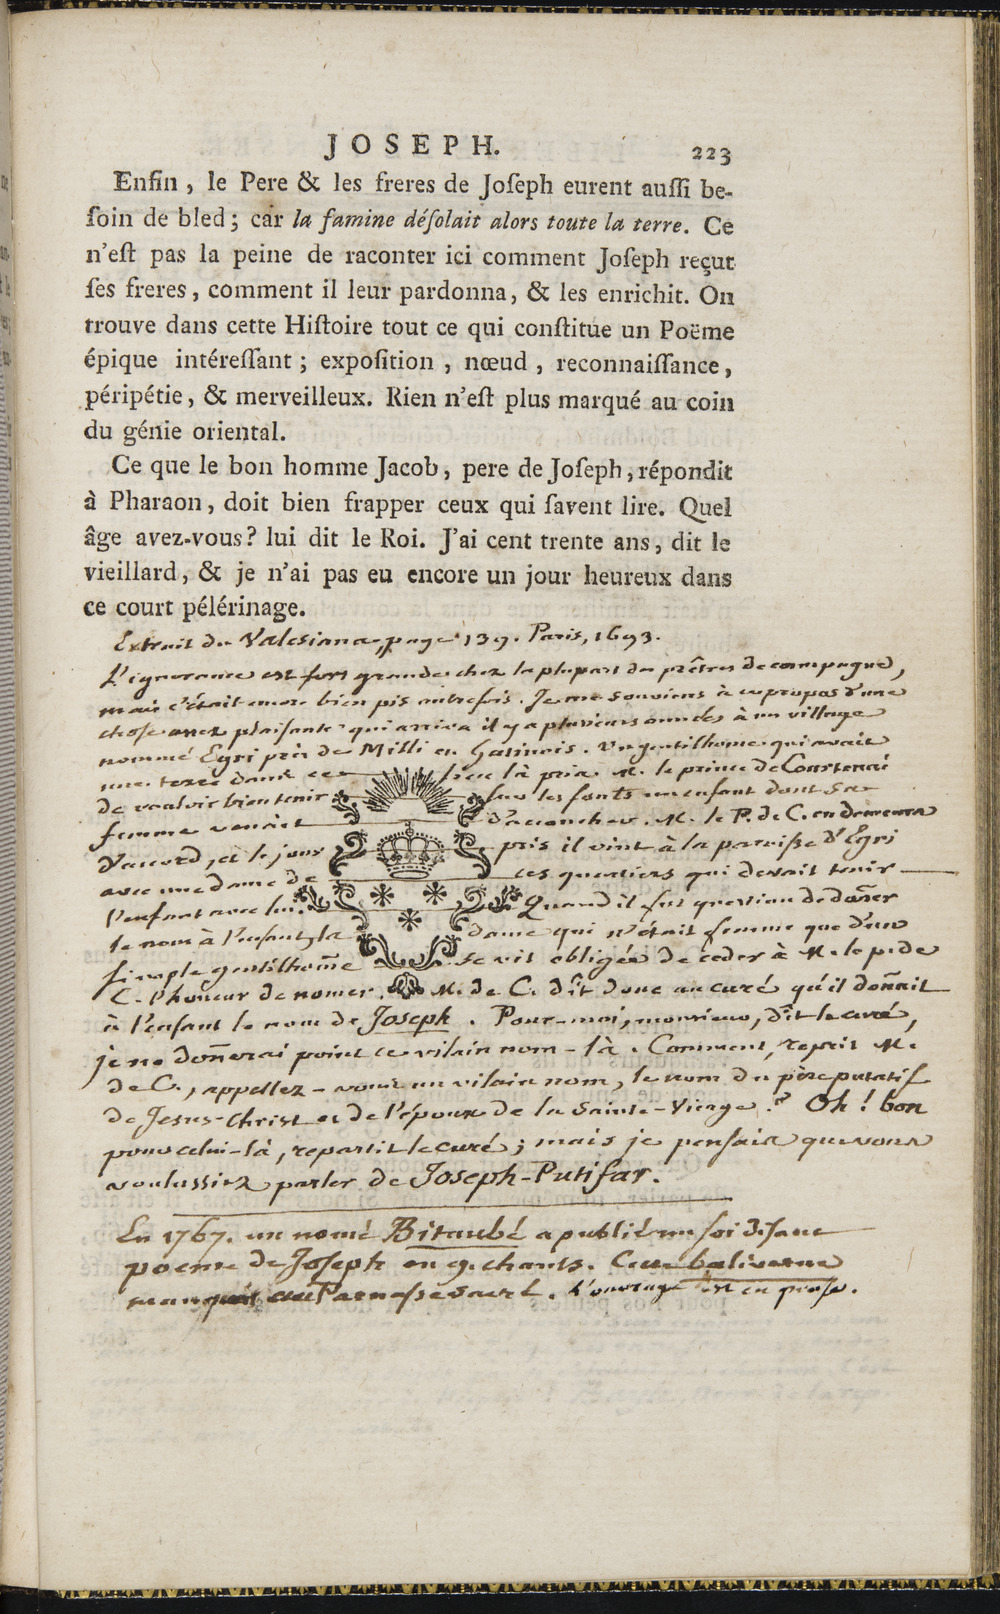 JOSEPH. 223
Enfin, le Pere & les freres de Joſeph eurent auſſi be-
ſoin de bled; car la famine déſolait alors toute la terre. Ce
n'eſt pas la peine de raconter ici comment Joſeph reçut
ſes freres, comment il leur pardonna, & les enrichit. On
trouve dans cette Hiſtoire tout ce qui conſtitue un Poëme
épique intéreſſant; expoſition, nœud, reconnaiſſance,
péripétie, & merveilleux. Rien n'eſt plus marqué au coin
du génie oriental.
Ce que le bon homme Jacob, pere de Joſeph, répondit
à Pharaon, doit bien frapper ceux qui ſavent lire. Quel
âge avez-vous? lui dit le Roi. J'ai cent trente ans, dit le
vieillard, & je n'ai pas eu encore un jour heureux dans
ce court pélérinage.
Extrait du Valesiana, page 139. Paris, 1693.
L'ignorance est fort grande chez la plupart des prêtres de campagne,
mais c'était encore bien pis autrefois. Je me souviens à ce propos d'une
chose assez plaisante qui arriva il y a plusieurs années à un village
nommé Egri près de Milli en Gatinois. Un gentilhome qui avait
une terre dans ce lieu là pria M. le prince de Courtenai
de vouloir bien tenir sur les fonts un enfant dont sa
femme venait d'accoucher. M. le P. de C. en demeura
d'accord, et le jour pris il vint à la paroisse d'Egri
avec une dame de ces quartiers qui devait tenir
l'enfant avec lui. Quand il fut question de doñer
le nom à l'enfant, la dame qui n'était femme que d'un
simple gentilhom̃e se vit obligée de ceder à M. le p. de
C. l'honeur de nomer. M. de C. dit donc au curé qu'il doñait
à l'enfant le nom de Joseph. Pour-moi, monsieur, dit le curé,
je ne doñerai point ce vilain nom-là. Comment, reprit M.
de C., appellez-vous un vilain nom, le nom du père putatif
de Jesus-Christ et de l'époux de la Sainte-Vierge? Oh! bon
pour celui-là, repartit le curé; mais je pensais que vous
voulussiez parler de Joseph-Putifar.
En 1767. un nomé Bitaubé a publié un soi disant
poeme de Joseph en 9. chants. Cette baliverne
manquait au Parnasse L'ouvrage est en prose.